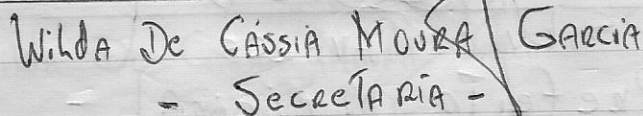 Wilda De Cássia Moura Garcia
- Secretaria -